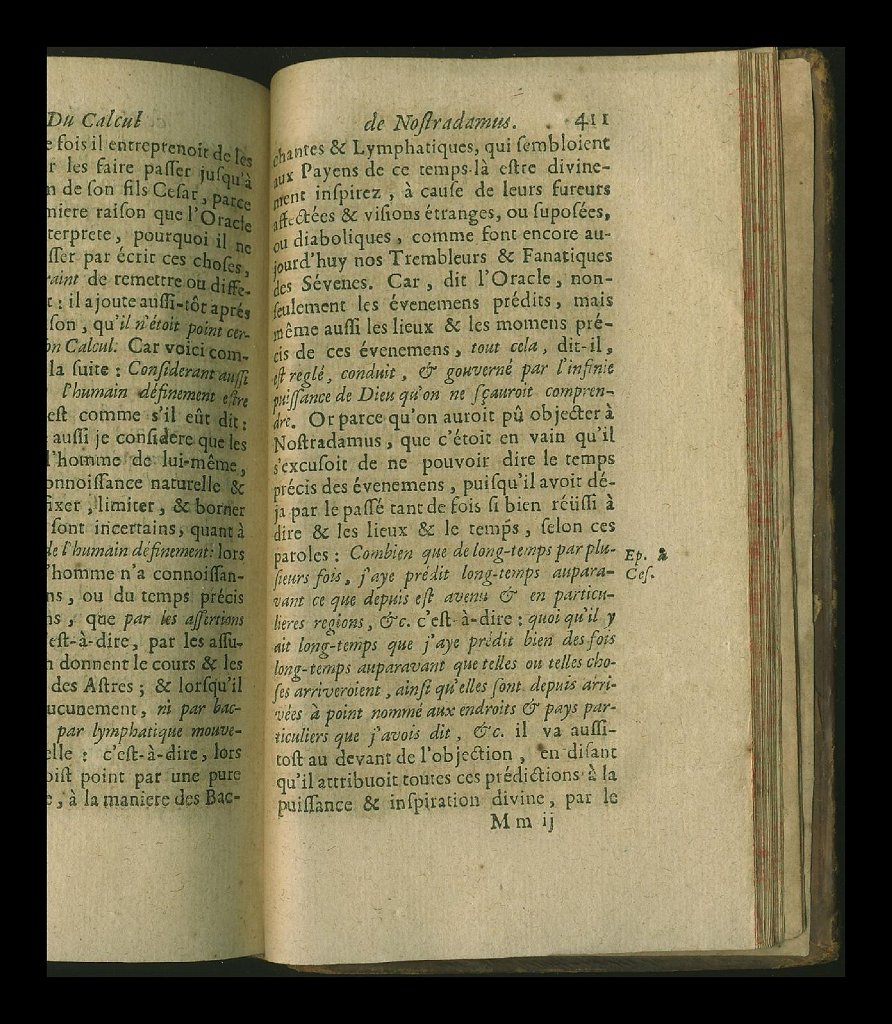 Du Calcul
fois il entreprenoit de les
r les faire passer jusqu'à
n de son fils Cesar, parce
miere raison que l'Oracle
terprete, pourquoi il ne
sser par écrit ces choses,
raint de remettre ou diffe-
t : il ajoute aussi-tôt aprés
son, qu'il n'étoit point cer-
on Calcul. Car voici com-
la suite : Considerant aussi
l'humain définement estre
est comme s'il eût dit :
aussi je considere que les
l'homme de lui-même,
onnoissance naturelle &
fixer, limiter, & borner
sont incertains, quant à
de l'humain définement: lors
'homme n'a connoissan-
ns, ou du temps précis
ns, que par les assertions
est-à-dire, par les assu-
n donnent le cours & les
des Astres ; & lorsqu'il
ucunement, ni par bac-
par lymphatique mouve-
elle : c'est-à-dire, lors
oist point par une pure
e, à la maniere des Bac-
de Nostradamus. 411
chantes & Lymphatiques, qui sembloient
aux Payens de ce temps-là estre divine-
ment inspirez, à cause de leurs fureurs
affectées & visions étranges, ou suposées,
ou diaboliques, comme font encore au-
jourd'huy nos Trembleurs & Fanatiques
des Sévenes. Car, dit l'Oracle, non-
seulement les évenemens prédits, mais
même aussi les lieux & les momens pré-
cis de ces évenemens, tout cela, dit-il,
est reglé, conduit, & gouverné par l'infinie
puissance de Dieu qu'on ne sçauroit compren-
dre. Or parce qu'on auroit pû objecter à
Nostradamus, que c'étoit en vain qu'il
s'excusoit de ne pouvoir dire le temps
précis des évenemens, puisqu'il avoit dé-
ja par le passé tant de fois si bien réüssi à
dire & les lieux & le temps, selon ces
paroles : Combien que de long-temps par plu-
sieurs fois, j'aye prédit long-temps aupara-
vant ce que depuis est avenu & en particu-
lieres regions, &c. c'est-à-dire : quoi qu'il y
ait long-temps que j'aye prédit bien des fois
long-temps auparavant que telles ou telles cho-
ses arriveroient, ainsi qu'elles sont depuis arri-
vées à point nommé aux endroits & pays par-
ticuliers que j'avois dit, &c. il va aussi-
tost au devant de l'objection, en disant
qu'il attribuoit toutes ces prédictions à la
puissance & inspiration divine, par le
M m ij
Ep. à
Ces.